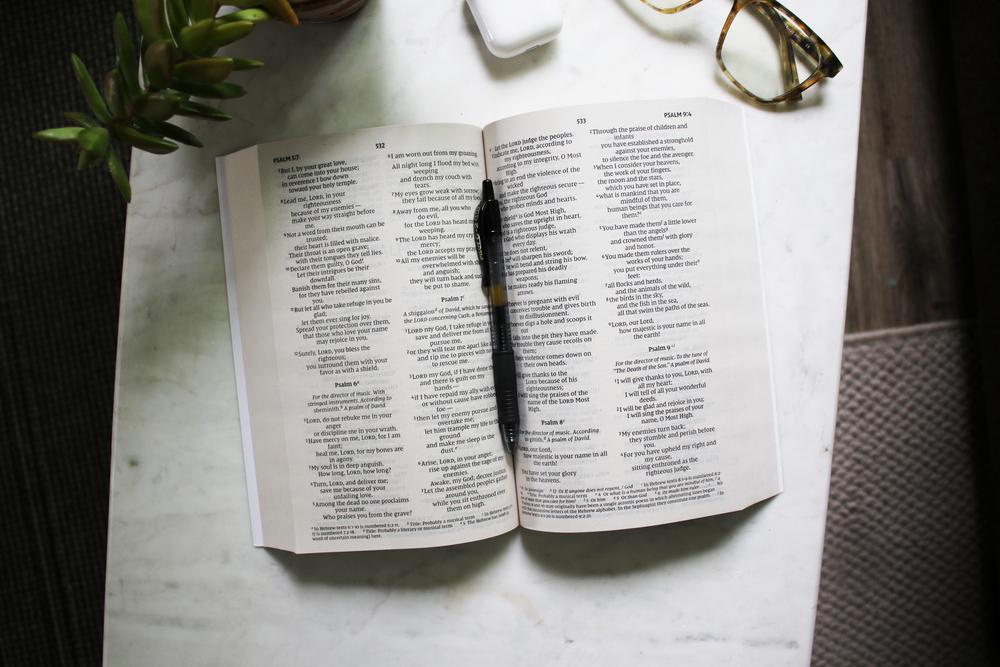 PSALM 5:7
532
⁷But I, by your great love,
can come into your house;
in reverence I bow down
toward your holy temple.
⁸Lead me, LORD, in your
righteousness
because of my enemies —
make your way straight before
me.
⁹Not a word from their mouth can be
trusted;
their heart is filled with malice.
Their throat is an open grave;
with their tongues they tell lies.
¹⁰Declare them guilty, O God!
Let their intrigues be their
downfall.
Banish them for their many sins,
for they have rebelled against
you.
¹¹But let all who take refuge in you be
glad;
let them ever sing for joy.
Spread your protection over them,
that those who love your name
may rejoice in you.
¹²Surely, LORD, you bless the
righteous;
you surround them with your
favor as with a shield.
Psalm 6
For the director of music. With
stringed instruments. According to
sheminith. A psalm of David.
¹LORD, do not rebuke me in your
anger
or discipline me in your wrath.
²Have mercy on me, LORD, for I am
faint;
heal me, LORD, for my bones are
in agony.
³My soul is in deep anguish.
How long, LORD, how long?
⁴Turn, LORD, and deliver me;
save me because of your
unfailing love.
⁵Among the dead no one proclaims
your name.
Who praises you from the grave?
⁶I am worn out from my groaning.
All night long I flood my bed with
weeping
and drench my couch with
tears.
⁷My eyes grow weak with sorrow;
they fail because of all my
⁸Away from me, all you who
do evil,
for the LORD has heard my
weeping.
⁹The LORD has heard my
mercy;
the LORD accepts my
¹⁰All my enemies will be
overwhelmed with
and anguish;
they will turn back and
be put to shame.
Psalm 7
A shiggaion of David, which he
the LORD concerning Cush, a
¹LORD my God, I take refuge in
save and deliver me from all
pursue me,
²or they will tear me apart like
and rip me to pieces with
to rescue me.
³LORD my God, if I have done
and there is guilt on my
hands —
⁴if I have repaid my ally with
or without cause have robbed
foe —
⁵then let my enemy pursue and
overtake me;
let him trample my life to the
ground
and make me sleep in the
dust.
⁶Arise, LORD, in your anger;
rise up against the rage of my
enemies.
Awake, my God; decree justice.
⁷Let the assembled peoples gather
around you,
while you sit enthroned over
them on high.
533
PSALM 9:4
Let the LORD judge the peoples.
Vindicate me, LORD, according to
my righteousness,
according to my integrity, O Most
High.
to an end the violence of the
wicked
and make the righteous secure —
the righteous God
who probes minds and hearts.
shield is God Most High,
who saves the upright in heart.
is a righteous judge,
God who displays his wrath
every day.
he does not relent,
will sharpen his sword;
he will bend and string his bow.
has prepared his deadly
weapons;
he makes ready his flaming
arrows.
is pregnant with evil
conceives trouble and gives birth
to disillusionment.
digs a hole and scoops it
out
falls into the pit they have made.
trouble they cause recoils on
them;
violence comes down on
their own heads.
will give thanks to the
LORD because of his
righteousness;
I will sing the praises of the
name of the LORD Most
High.
Psalm 8
For the director of music. According
to gittith. A psalm of David.
LORD, our Lord,
how majestic is your name in all
the earth!
You have set your glory
in the heavens.
²Through the praise of children and
infants
you have established a stronghold
against your enemies,
to silence the foe and the avenger.
³When I consider your heavens,
the work of your fingers,
the moon and the stars,
which you have set in place,
⁴what is mankind that you are
mindful of them,
human beings that you care for
them?
⁵You have made them a little lower
than the angels
and crowned them with glory
and honor.
⁶You made them rulers over the
works of your hands;
you put everything under their
feet:
⁷all flocks and herds,
and the animals of the wild,
⁸the birds in the sky,
and the fish in the sea,
all that swim the paths of the seas.
⁹LORD, our Lord,
how majestic is your name in all
the earth!
Psalm 9
For the director of music. To the tune of
"The Death of the Son." A psalm of David.
¹I will give thanks to you, LORD, with
all my heart;
I will tell of all your wonderful
deeds.
²I will be glad and rejoice in you;
I will sing the praises of your
name, O Most High.
³My enemies turn back;
they stumble and perish before
you.
⁴For you have upheld my right and
my cause,
sitting enthroned as the
righteous judge.